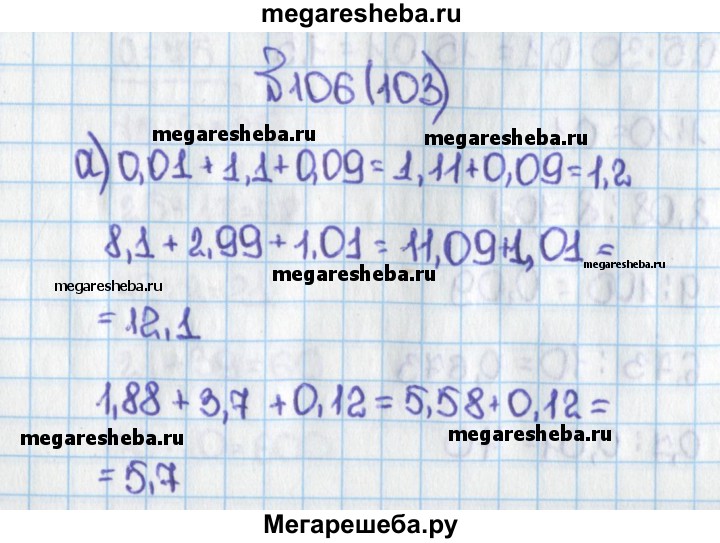 megaresheba.ru
№106(103)
megaresheba.ru megaresheba.ru
а) 0,01 + 1,1 + 0,09 = 1,11 + 0,09 = 1,2
8,1 + 2,99 + 1,01 = 11,09 + 1,01 =
megaresheba.ru megaresheba.ru megaresheba.ru
= 12,1
1,88 + 3,7 + 0,12 = 5,58 + 0,12 =
megaresheba.ru megaresheba.ru
= 5,7
Мегарешеба.ру